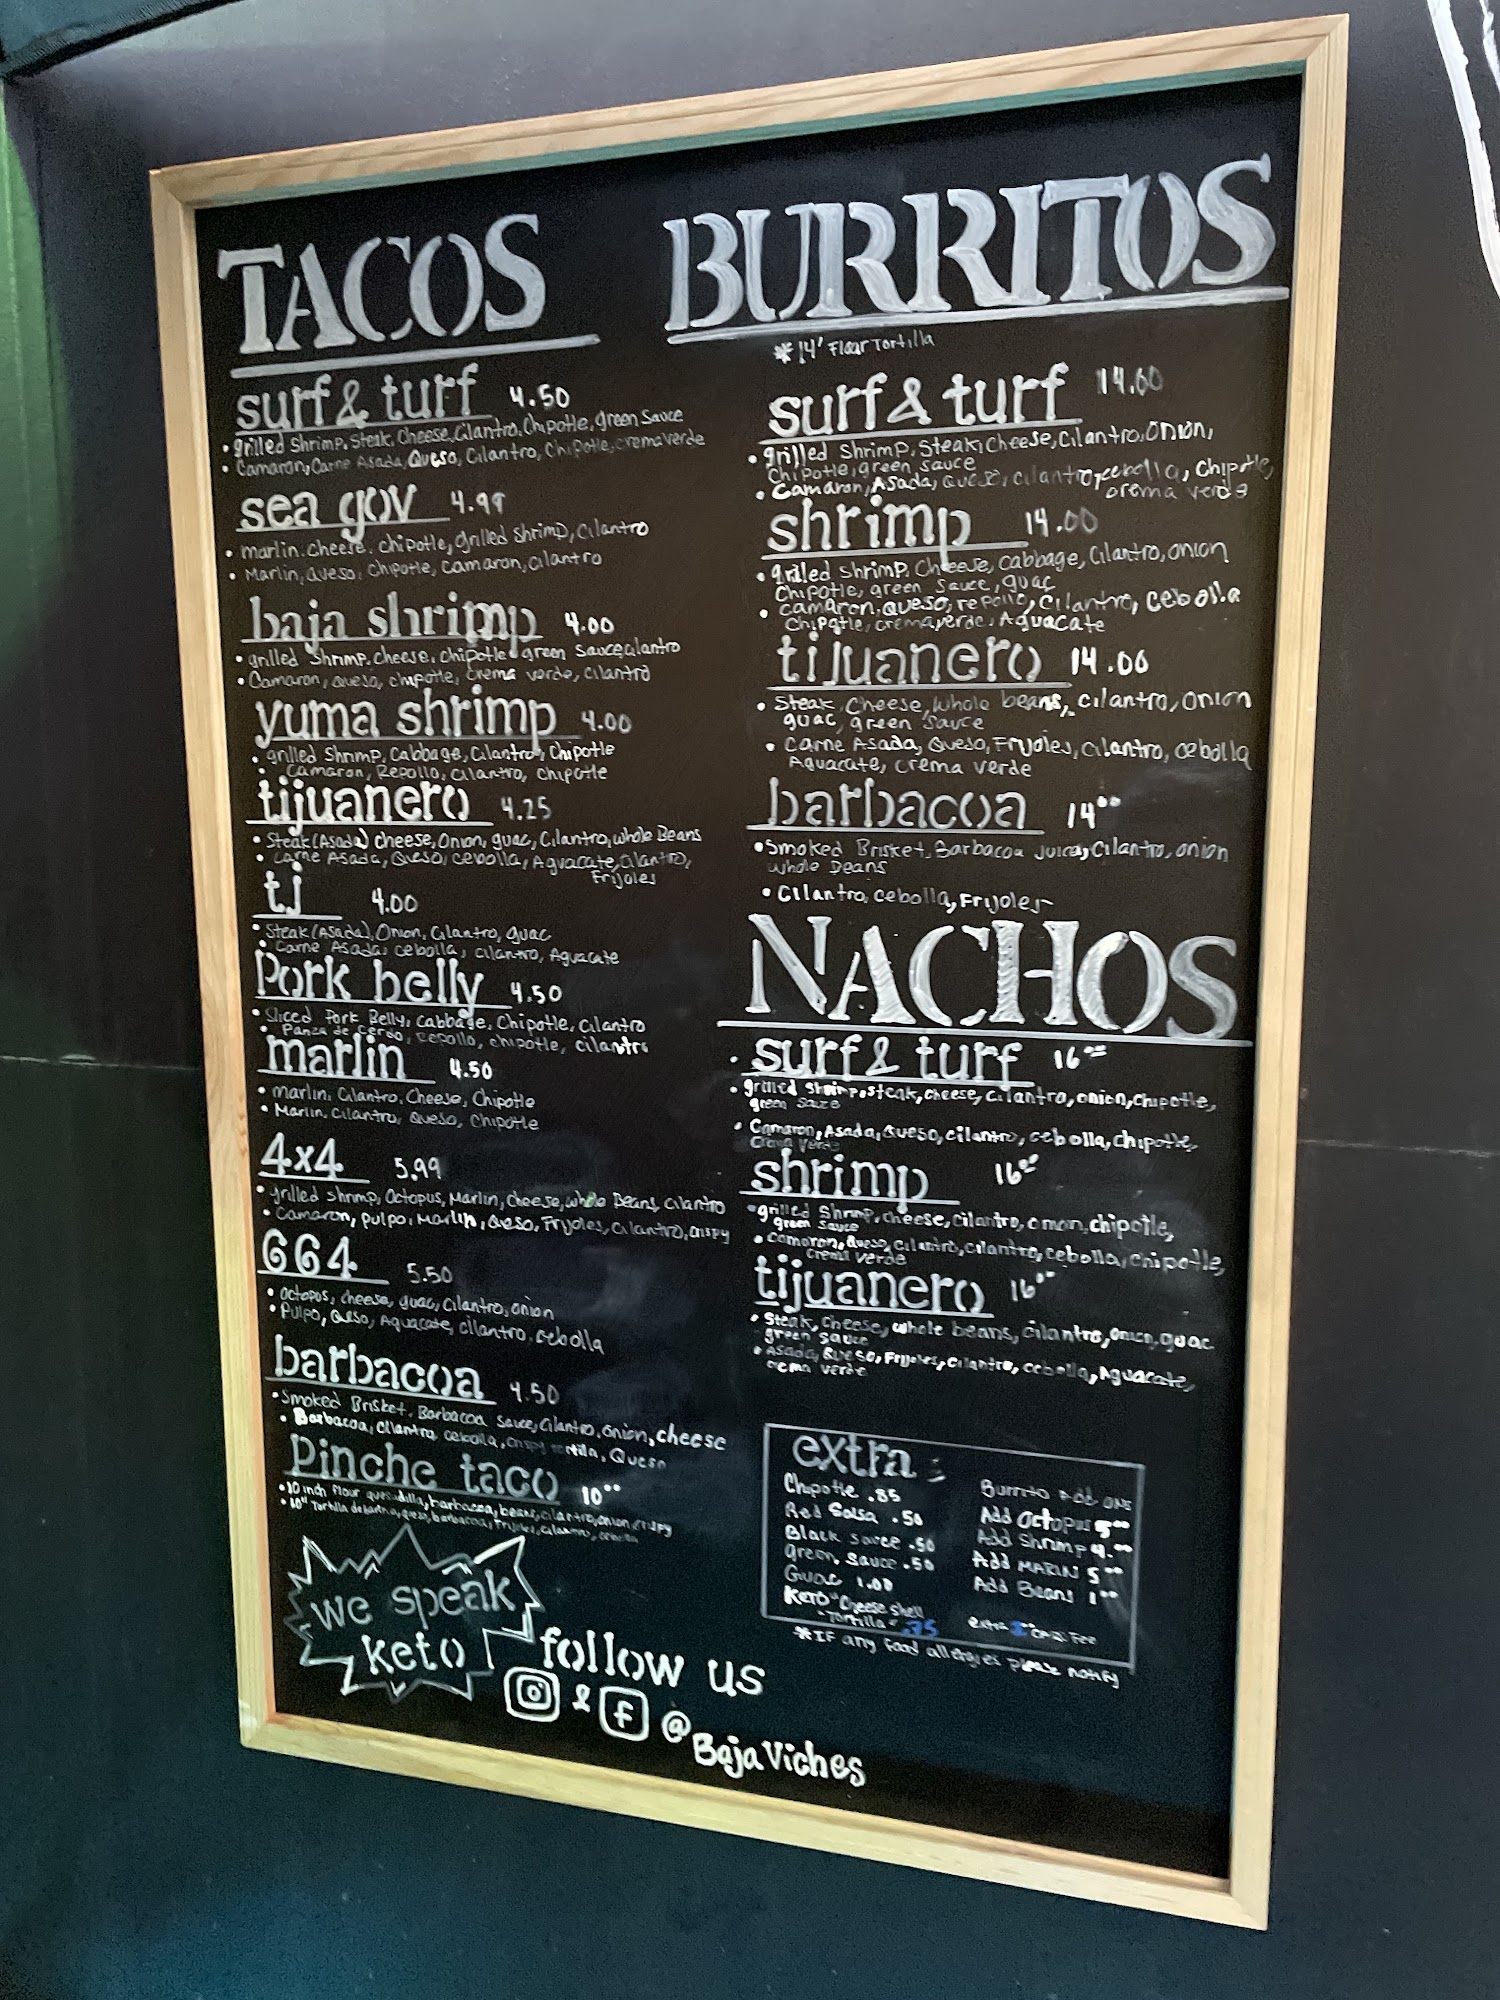 TACOS
surf & turf 4.50
• grilled Shrimp, Steak, Cheese, Cilantro, Chipotle, green Sauce
• Camaron, Carne Asada, Queso, Cilantro, Chipotle, crema verde
sea gov 4.99
• Marlin, Cheese, Chipotle, grilled Shrimp, Cilantro
• Marlin, Queso, Chipotle, Camaron, Cilantro
baja shrimp 4.00
• grilled Shrimp, Cheese, Chipotle green Sauce, Cilantro
• Camaron, Queso, chipotle, crema verde, cilantro
yuma shrimp 4.00
• grilled Shrimp, Cabbage, Cilantro, Chipotle
• Camaron, Repollo, Cilantro, chipotle
tijuanero 4.25
• Steak (Asada) Cheese, Onion, guac, Cilantro, whole Beans
• Carne Asada, Queso, cebolla, Aguacate, Cilantro,
Frijoles
tj 4.00
• Steak (Asada), Onion, Cilantro, guac
• Carne Asada, cebolla, cilantro, Aguacate
Pork belly 4.50
• Sliced Pork Belly, Cabbage, Chipotle, Cilantro
• Panza de Cerdo, repollo, chipotle, cilantro
marlin 4.50
• Marlin, Cilantro, Cheese, Chipotle
• Marlin, Cilantro, Queso, Chipotle
4x4 5.99
• grilled Shrimp, Octopus, Marlin, Cheese, whole Beans, cilantro
• Camaron, pulpo, Marlin, Queso, Frijoles, Cilantro, crispy
664 5.50
• octopus, cheese, guac, Cilantro, onion
• Pulpo, Queso, Aguacate, cilantro, cebolla
barbacoa 4.50
• Smoked Brisket, Barbacoa Sauce, Cilantro, onion, cheese
• Barbacoa, cilantro, cebolla, crispy tortilla, Queso
Pinche taco 10⁰⁰
• 10 inch flour quesadilla, barbacoa, beans, cilantro, onion, crispy
• 10" Tortilla de harina, queso, barbacoa, Frijoles, cilantro, cebolla
we speak
keto
follow us
& @BajaViches
BURRITOS
* 14' Flour Tortilla
surf & turf 14.00
• grilled Shrimp, Steak, Cheese, Cilantro, Onion,
Chipotle, green sauce
• Camaron, Asada, Queso, cilantro, cebolla, Chipotle,
crema verde
shrimp 14.00
• grilled shrimp, Cheese, cabbage, Cilantro, onion
Chipotle, green Sauce, guac
• camaron, Queso, repollo, Cilantro, cebolla
Chipotle, crema verde, Aguacate
tijuanero 14.00
• Steak, Cheese, whole beans, cilantro, onion
guac, green sauce
• Carne Asada, Queso, Fryoles, cilantro, cebolla
Aguacate, crema verde
barbacoa 14⁰⁰
• Smoked Brisket, Barbacoa Juice, Cilantro, onion
whole Beans
• Cilantro, cebolla, Frijoles
NACHOS
• surf & turf 16⁰⁰
• grilled Shrimp, steak, cheese, Cilantro, onion, chipotle,
green sauce
• Camaron, Asada, Queso, cilantro, cebolla, chipotle,
Crema verde
shrimp 16⁰⁰
• grilled Shrimp, cheese, cilantro, onion, chipotle,
green sauce
• camaron, Queso, cilantro, cilantro, cebolla, chipotle,
Crema verde
tijuanero 16⁰⁰
• Steak, cheese, whole beans, cilantro, onion, guac
green sauce
• Asada, Queso, Frijoles, cilantro, cebolla, Aguacate,
crema verde
extra :
Chipotle .85
Red Salsa .50
Black sauce .50
green sauce .50
Guac 1.00
Keto "Cheese shell
"Tortilla" .75
Burrito Add ons
Add Octopus 5⁰⁰
Add Shrimp 4.⁰⁰
Add MARLIN 5⁰⁰
Add Beans 1⁰⁰
extra Fee
* IF any food allergies please notify